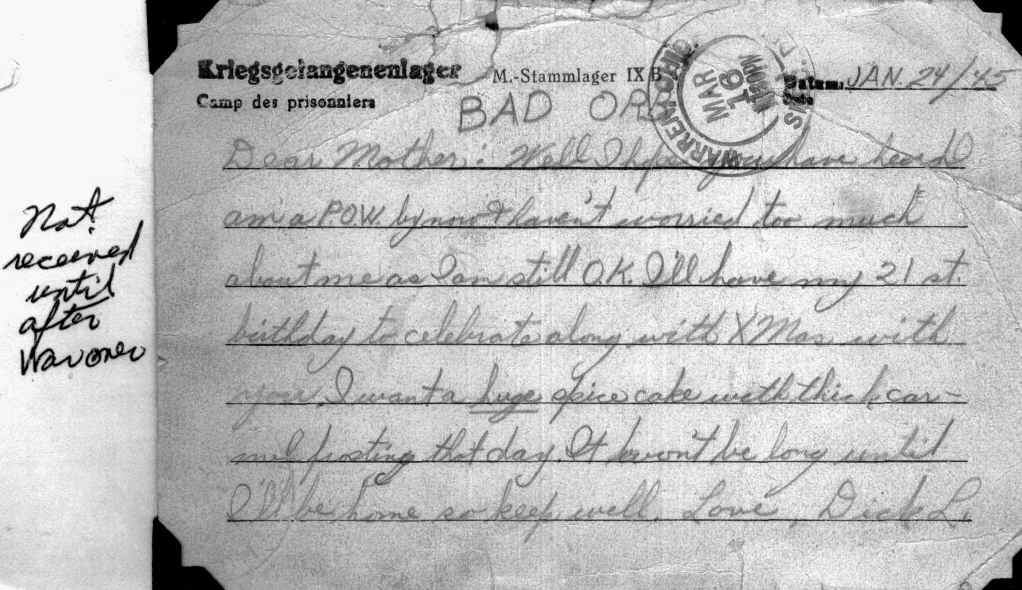 Kriegsgefangenenlager M.-Stammlager IX B Datum: JAN. 24/45
Camp des prisonniers Date
BAD ORB
WARREN, OHIO MAR 16
Dear Mother: Well I hope you have heard I
am a P.O.W. by now & haven't worried too much
about me as I am still O.K. I'll have my 21 st.
birthday to celebrate along with XMas with
you. I want a huge spice cake with thick car-
mel frosting that day. It won't be long until
I'll be home so keep well. Love, Dick L.
Not
received
until
after
War over